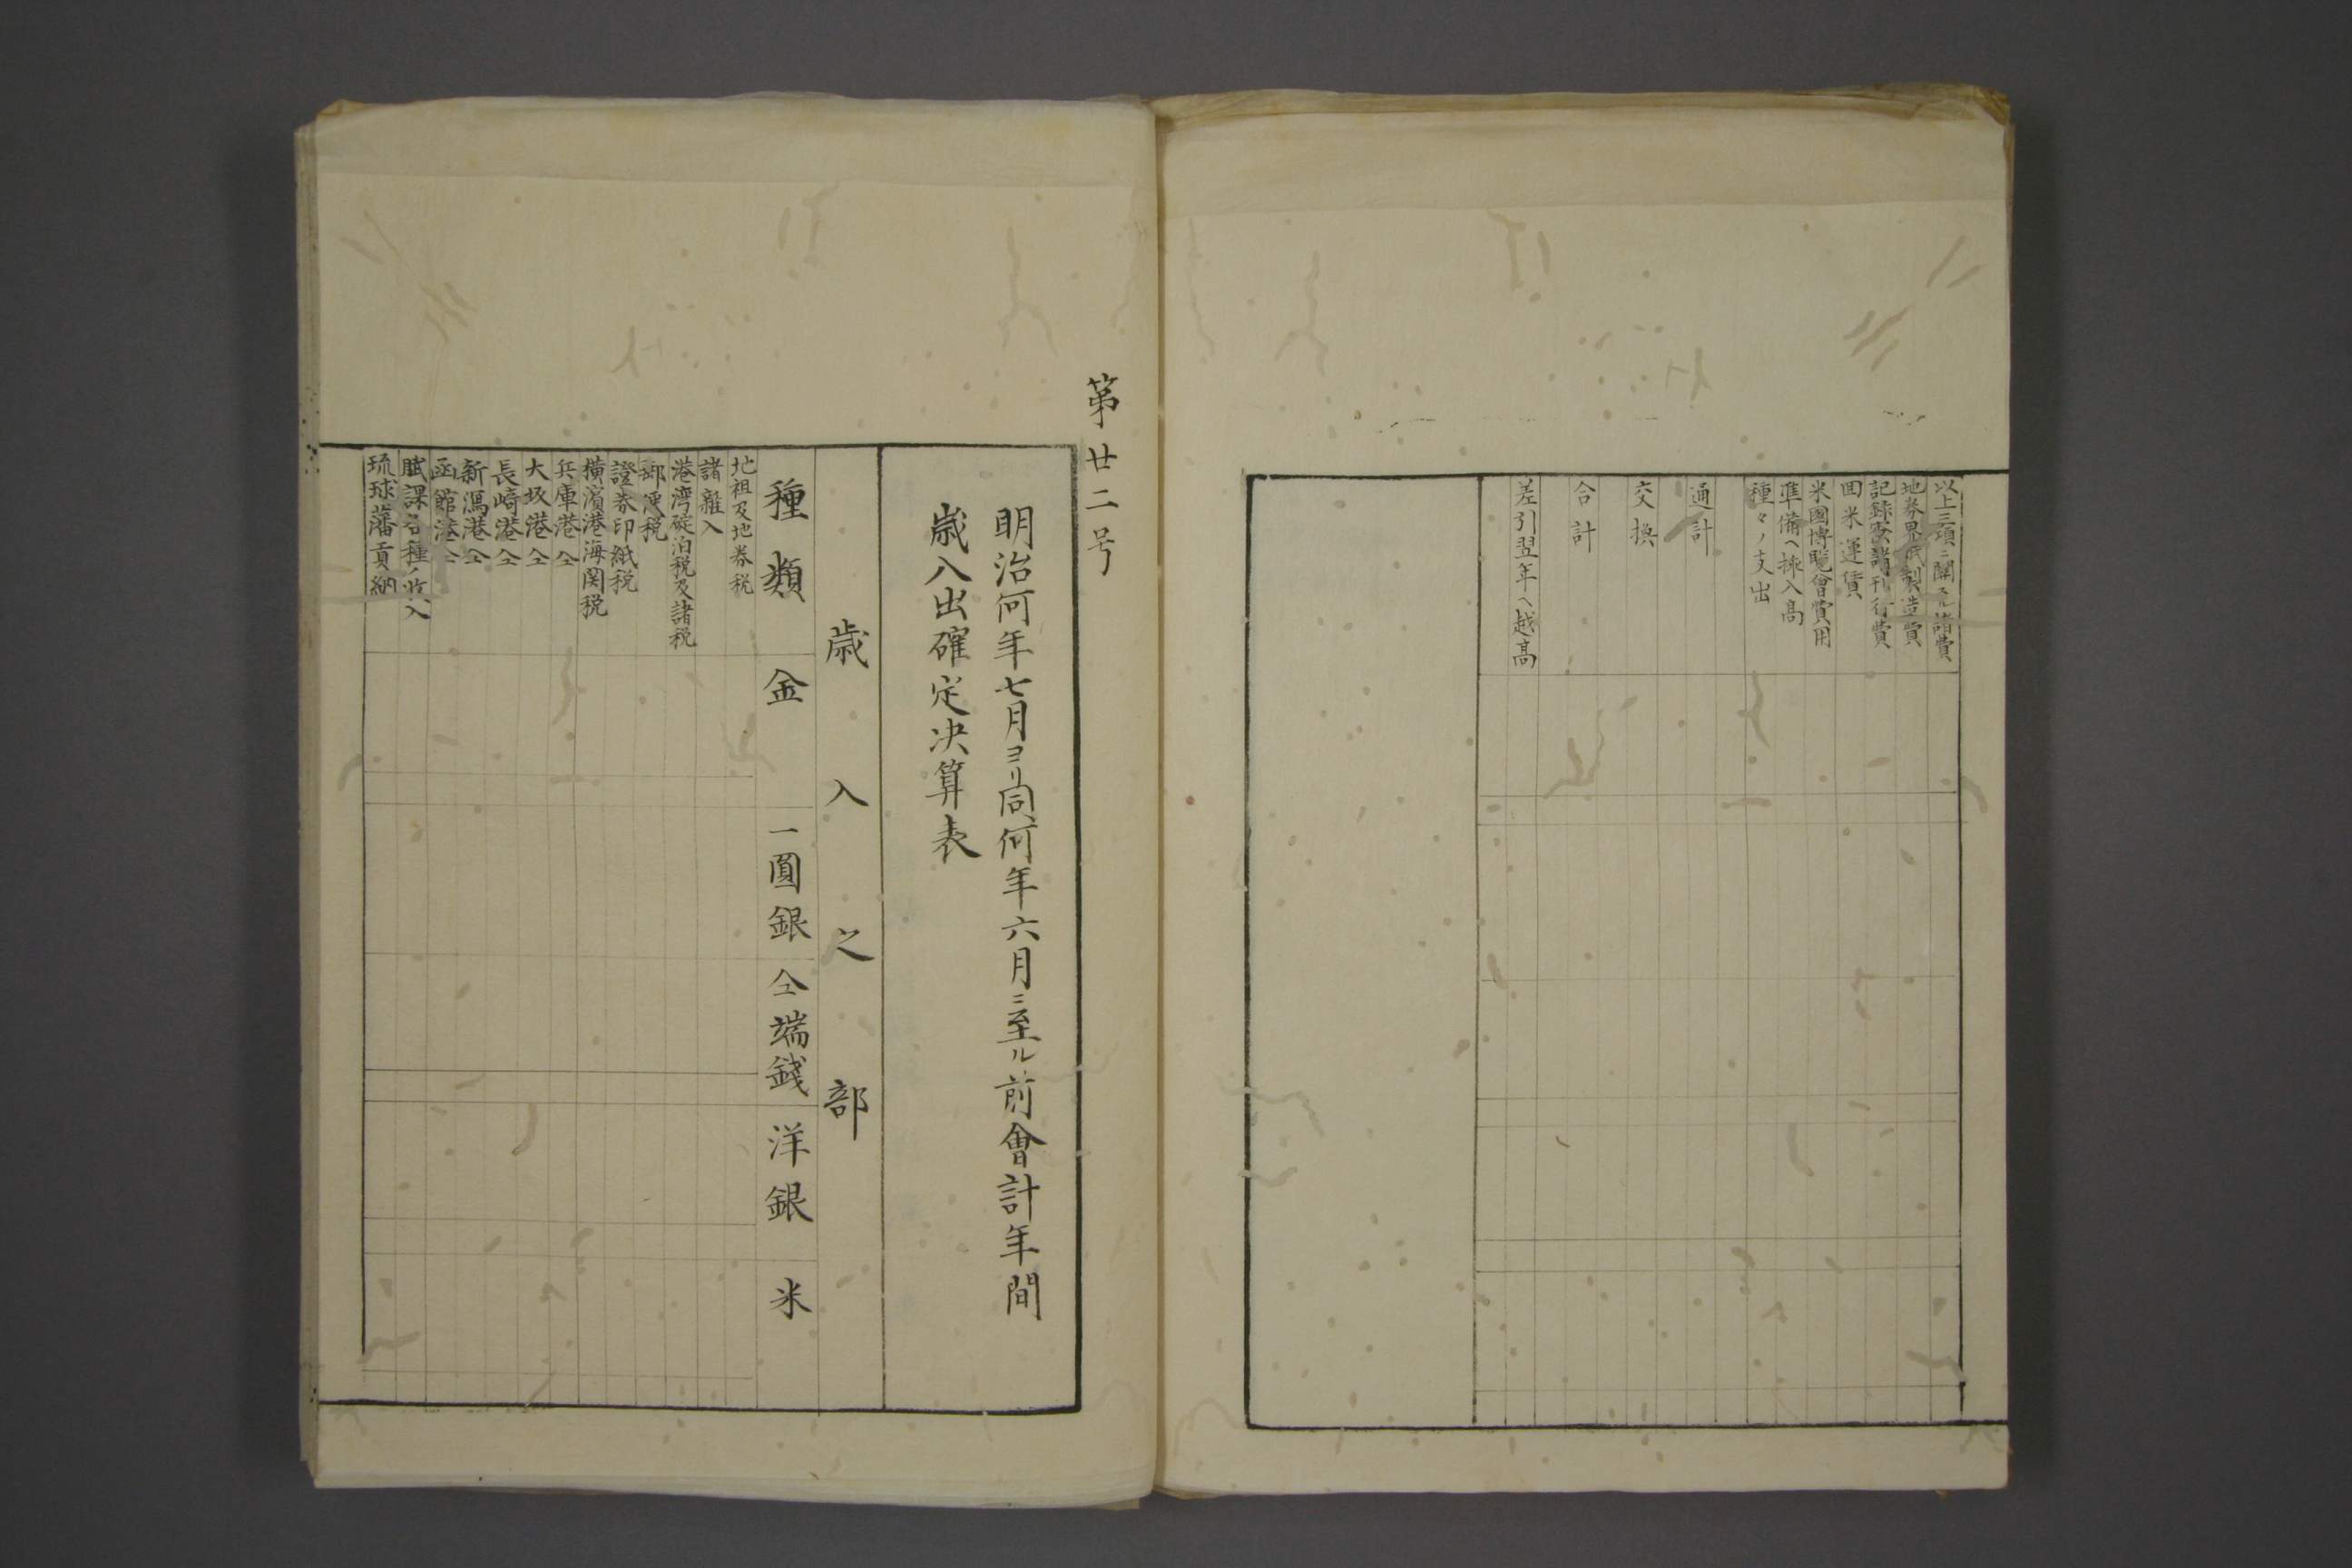 以上三項ニ關スル諸費
地券界紙製造費
記録寮諸刊行費
囬米運賃
米國博覧會費用
準備ヘ振入高
種々ノ支出
通計
交換
合計
差引翌年ヘ越高
第廿二号
明治何年七月ヨリ同何年六月ニ至ル前會計年間
歳入出確定决算表
歳入之部
種類 金 一圓銀 仝端錢 洋銀 米
地祖及地券税
諸雜入
港湾碇泊税及諸税
郵便税
證券印紙税
横濱港海関税
兵庫港仝
大坂港仝
長崎港仝
新潟港仝
函館港仝
賦課各種ノ收入
琉球藩貢納